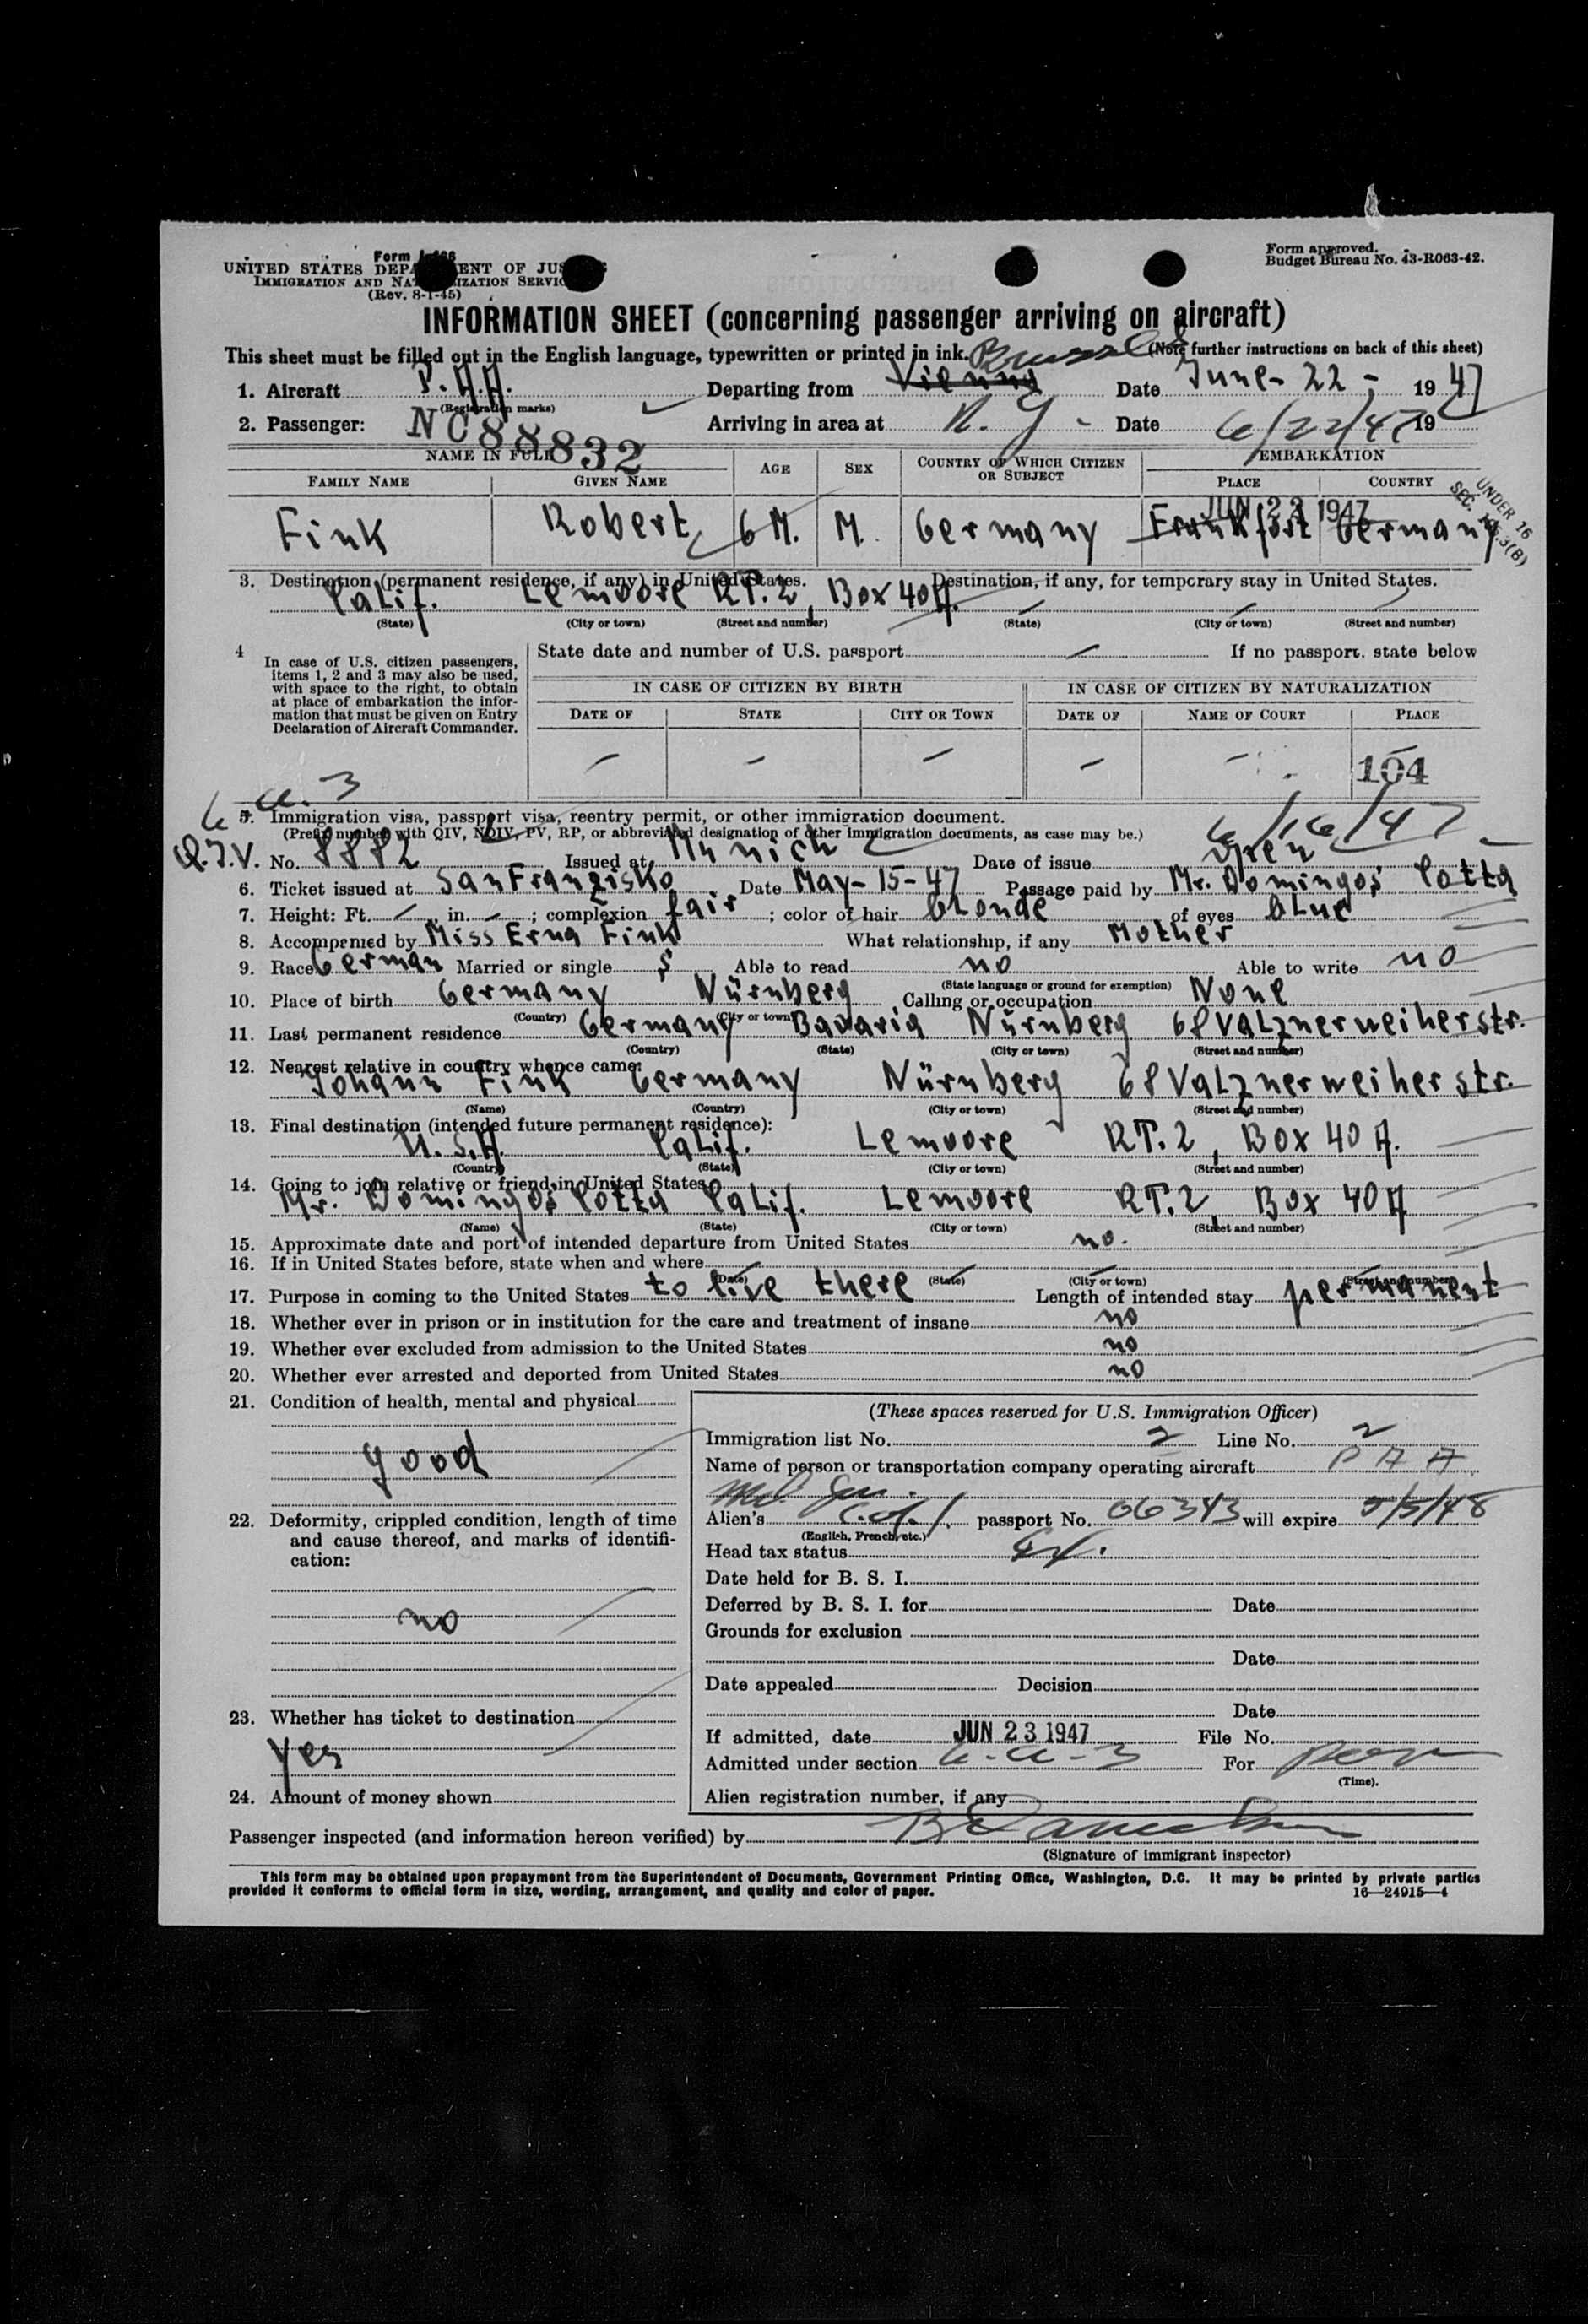 Form I-466
UNITED STATES DEPARTMENT OF JUSTICE
IMMIGRATION AND NATURALIZATION SERVICE
(Rev. 8-1-45)
Form approved.
Budget Bureau No. 43-R063-42.
INFORMATION SHEET (concerning passenger arriving on aircraft)
This sheet must be filled out in the English language, typewritten or printed in ink. (Note further instructions on back of this sheet)
Brussels
1. Aircraft P.A.A. Departing from Vienna Date June - 22 - 1947
(Registration marks)
2. Passenger: NC88832 Arriving in area at N.Y. Date 6/22/47 19
NAME IN FULL AGE SEX COUNTRY OF WHICH CITIZEN OR SUBJECT EMBARKATION
FAMILY NAME GIVEN NAME PLACE COUNTRY
JUN 23 1947
UNDER 16
Fink Robert 6 M. M. Germany Frankfort Germany
3. Destination (permanent residence, if any) in United States. Destination, if any, for temporary stay in United States.
Calif. Lemoore RT. 2, Box 40A.
(State) (City or town) (Street and number) (State) (City or town) (Street and number)
4 In case of U.S. citizen passengers, items 1, 2 and 3 may also be used, with space to the right, to obtain at place of embarkation the information that must be given on Entry Declaration of Aircraft Commander.
State date and number of U.S. passport If no passport, state below
IN CASE OF CITIZEN BY BIRTH IN CASE OF CITIZEN BY NATURALIZATION
DATE OF STATE CITY OR TOWN DATE OF NAME OF COURT PLACE
104
6.a.3
5. Immigration visa, passport visa, reentry permit, or other immigration document.
(Prefix number with QIV, NQIV, PV, RP, or abbreviated designation of other immigration documents, as case may be.) 6/16/47
Q.I.V. No. 8882 Issued at Munich Date of issue
6. Ticket issued at San Franzisko Date May - 15 - 47 Passage paid by Mr. Domingos Cotta
7. Height: Ft. in. ; complexion fair ; color of hair blonde of eyes blue
8. Accompanied by Miss Erna Fink What relationship, if any Mother
9. Race German Married or single S Able to read no Able to write no
(State language or ground for exemption)
10. Place of birth Germany Nürnberg Calling or occupation None
(Country) (City or town)
11. Last permanent residence Germany Bavaria Nürnberg 68 Valznerweiherstr.
(Country) (State) (City or town) (Street and number)
12. Nearest relative in country whence came:
Johann Fink Germany Nürnberg 68 Valznerweiherstr.
(Name) (Country) (City or town) (Street and number)
13. Final destination (intended future permanent residence):
U.S.A. Calif. Lemoore RT. 2, Box 40 A.
(Country) (State) (City or town) (Street and number)
14. Going to join relative or friend in United States
Mr. Domingos Cotta Calif. Lemoore RT. 2, Box 40 A
(Name) (State) (City or town) (Street and number)
15. Approximate date and port of intended departure from United States no.
16. If in United States before, state when and where
(Date) (State) (City or town) (Street and number)
17. Purpose in coming to the United States to live there Length of intended stay permanent
18. Whether ever in prison or in institution for the care and treatment of insane no
19. Whether ever excluded from admission to the United States no
20. Whether ever arrested and deported from United States no
21. Condition of health, mental and physical
good
22. Deformity, crippled condition, length of time and cause thereof, and marks of identification:
no
23. Whether has ticket to destination
Yes
24. Amount of money shown
(These spaces reserved for U.S. Immigration Officer)
Immigration list No. 2 Line No. 2
Name of person or transportation company operating aircraft P A A
Alien's passport No. 06343 will expire 5/5/48
(English, French, etc.)
Head tax status
Date held for B. S. I.
Deferred by B. S. I. for Date
Grounds for exclusion
Date
Date appealed Decision
Date
If admitted, date JUN 23 1947 File No.
Admitted under section 6-a-3 For perm
(Time).
Alien registration number, if any
Passenger inspected (and information hereon verified) by
(Signature of immigrant inspector)
This form may be obtained upon prepayment from the Superintendent of Documents, Government Printing Office, Washington, D.C. It may be printed by private parties
provided it conforms to official form in size, wording, arrangement, and quality and color of paper. 16—24915—4